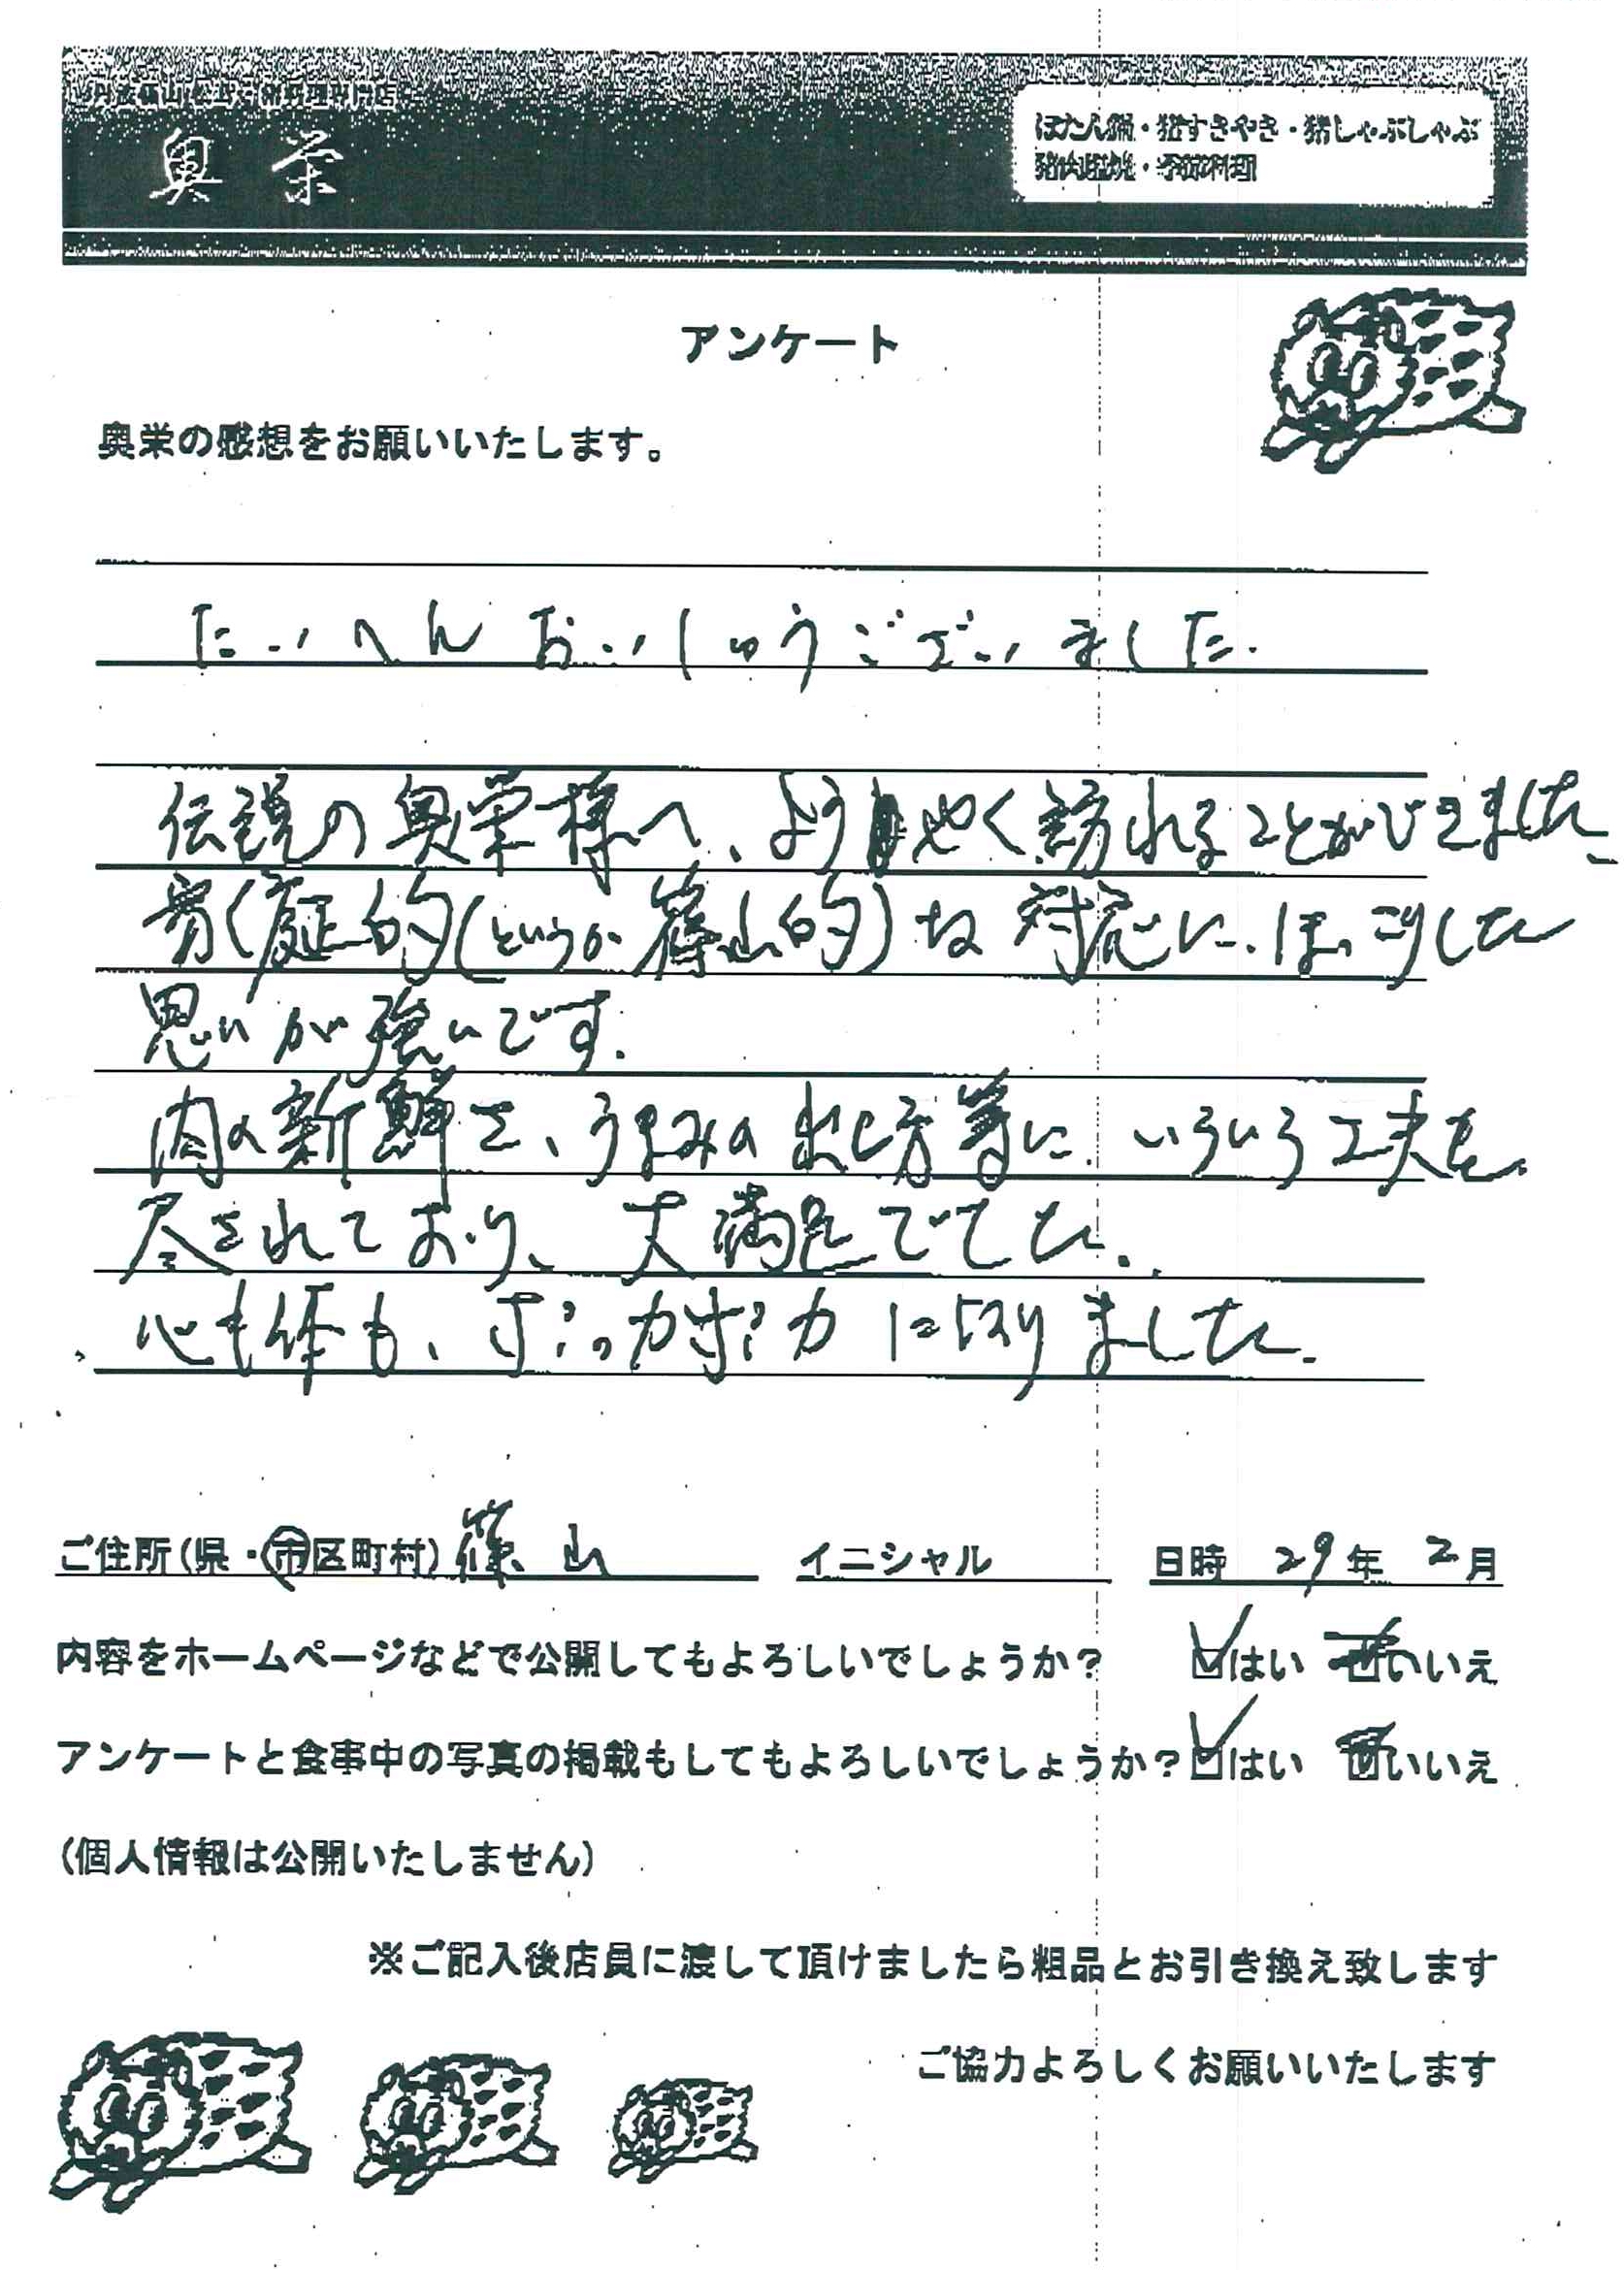 奥栄
ぼたん鍋・猪すきやき・猪しゃぶしゃぶ
アンケート
奥栄の感想をお願いいたします。
たいへんおいしゅうございました.
伝説の奥栄様へ、ようやく訪れることができました
家庭的(というか篠山的)な対応に、ほっこりした
思いが強いです.
肉の新鮮さ、うまみの出し方等に、いろいろ工夫を
尽されており、大満足でした.
心も体も、ポッカポカになりました.
ご住所(県・市区町村) 篠山 イニシャル 日時 29年 2月
内容をホームページなどで公開してもよろしいでしょうか? はい いいえ
アンケートと食事中の写真の掲載もしてもよろしいでしょうか? はい いいえ
(個人情報は公開いたしません)
※ご記入後店員に渡して頂けましたら粗品とお引き換え致します
ご協力よろしくお願いいたします